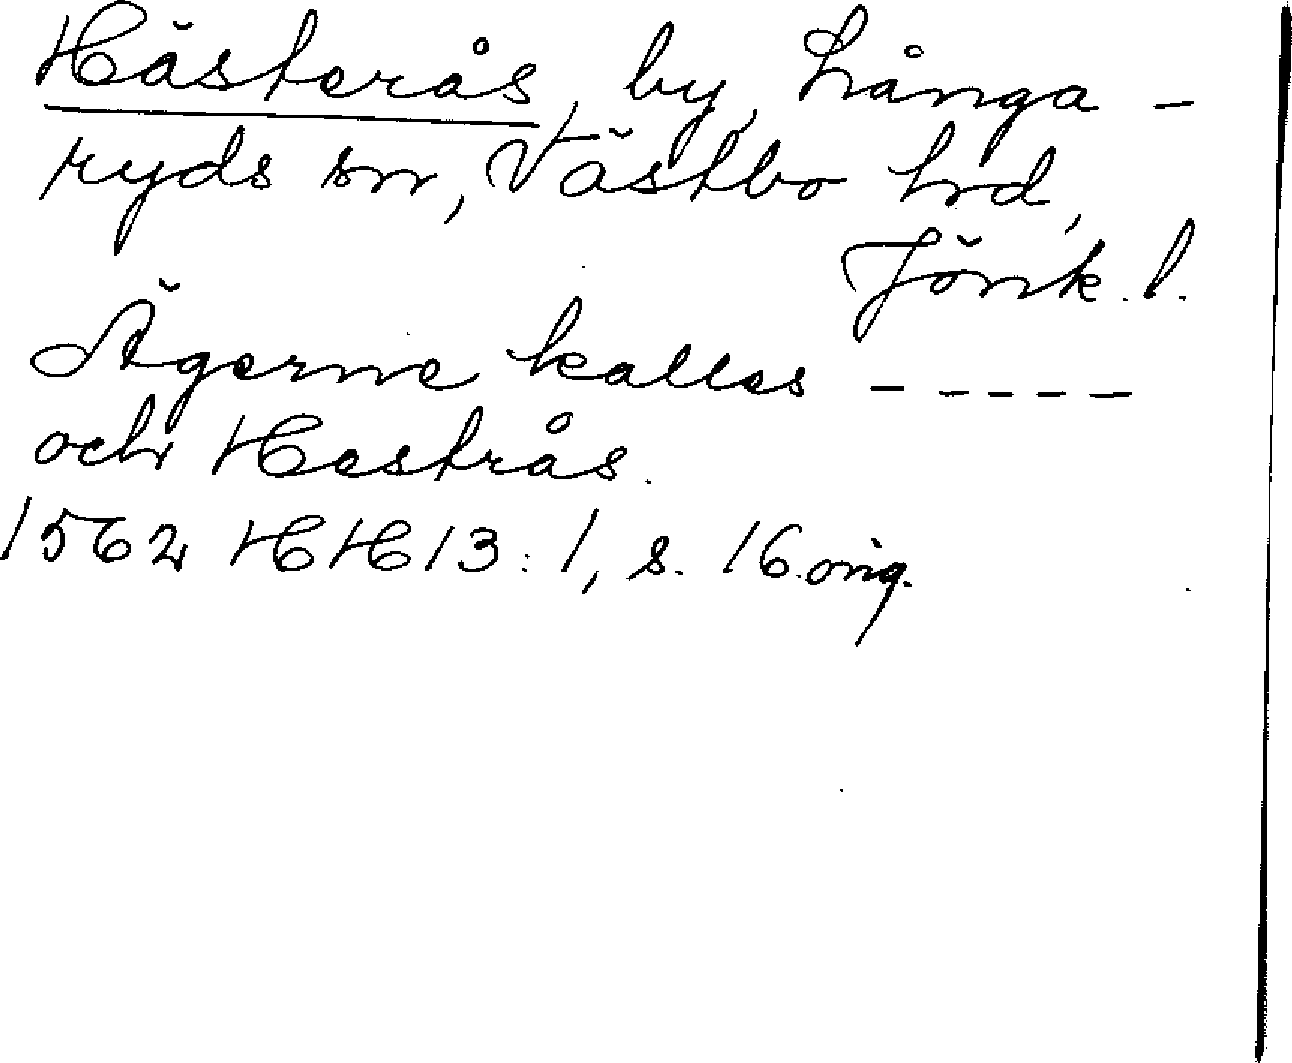 Hästerås, by, Långa-
ryds sn, Västbo hrd,
Jönk. l.
Ägerne kallas - - - - -
och Hestrås.
1562 HH 13:1, s. 16 orig.